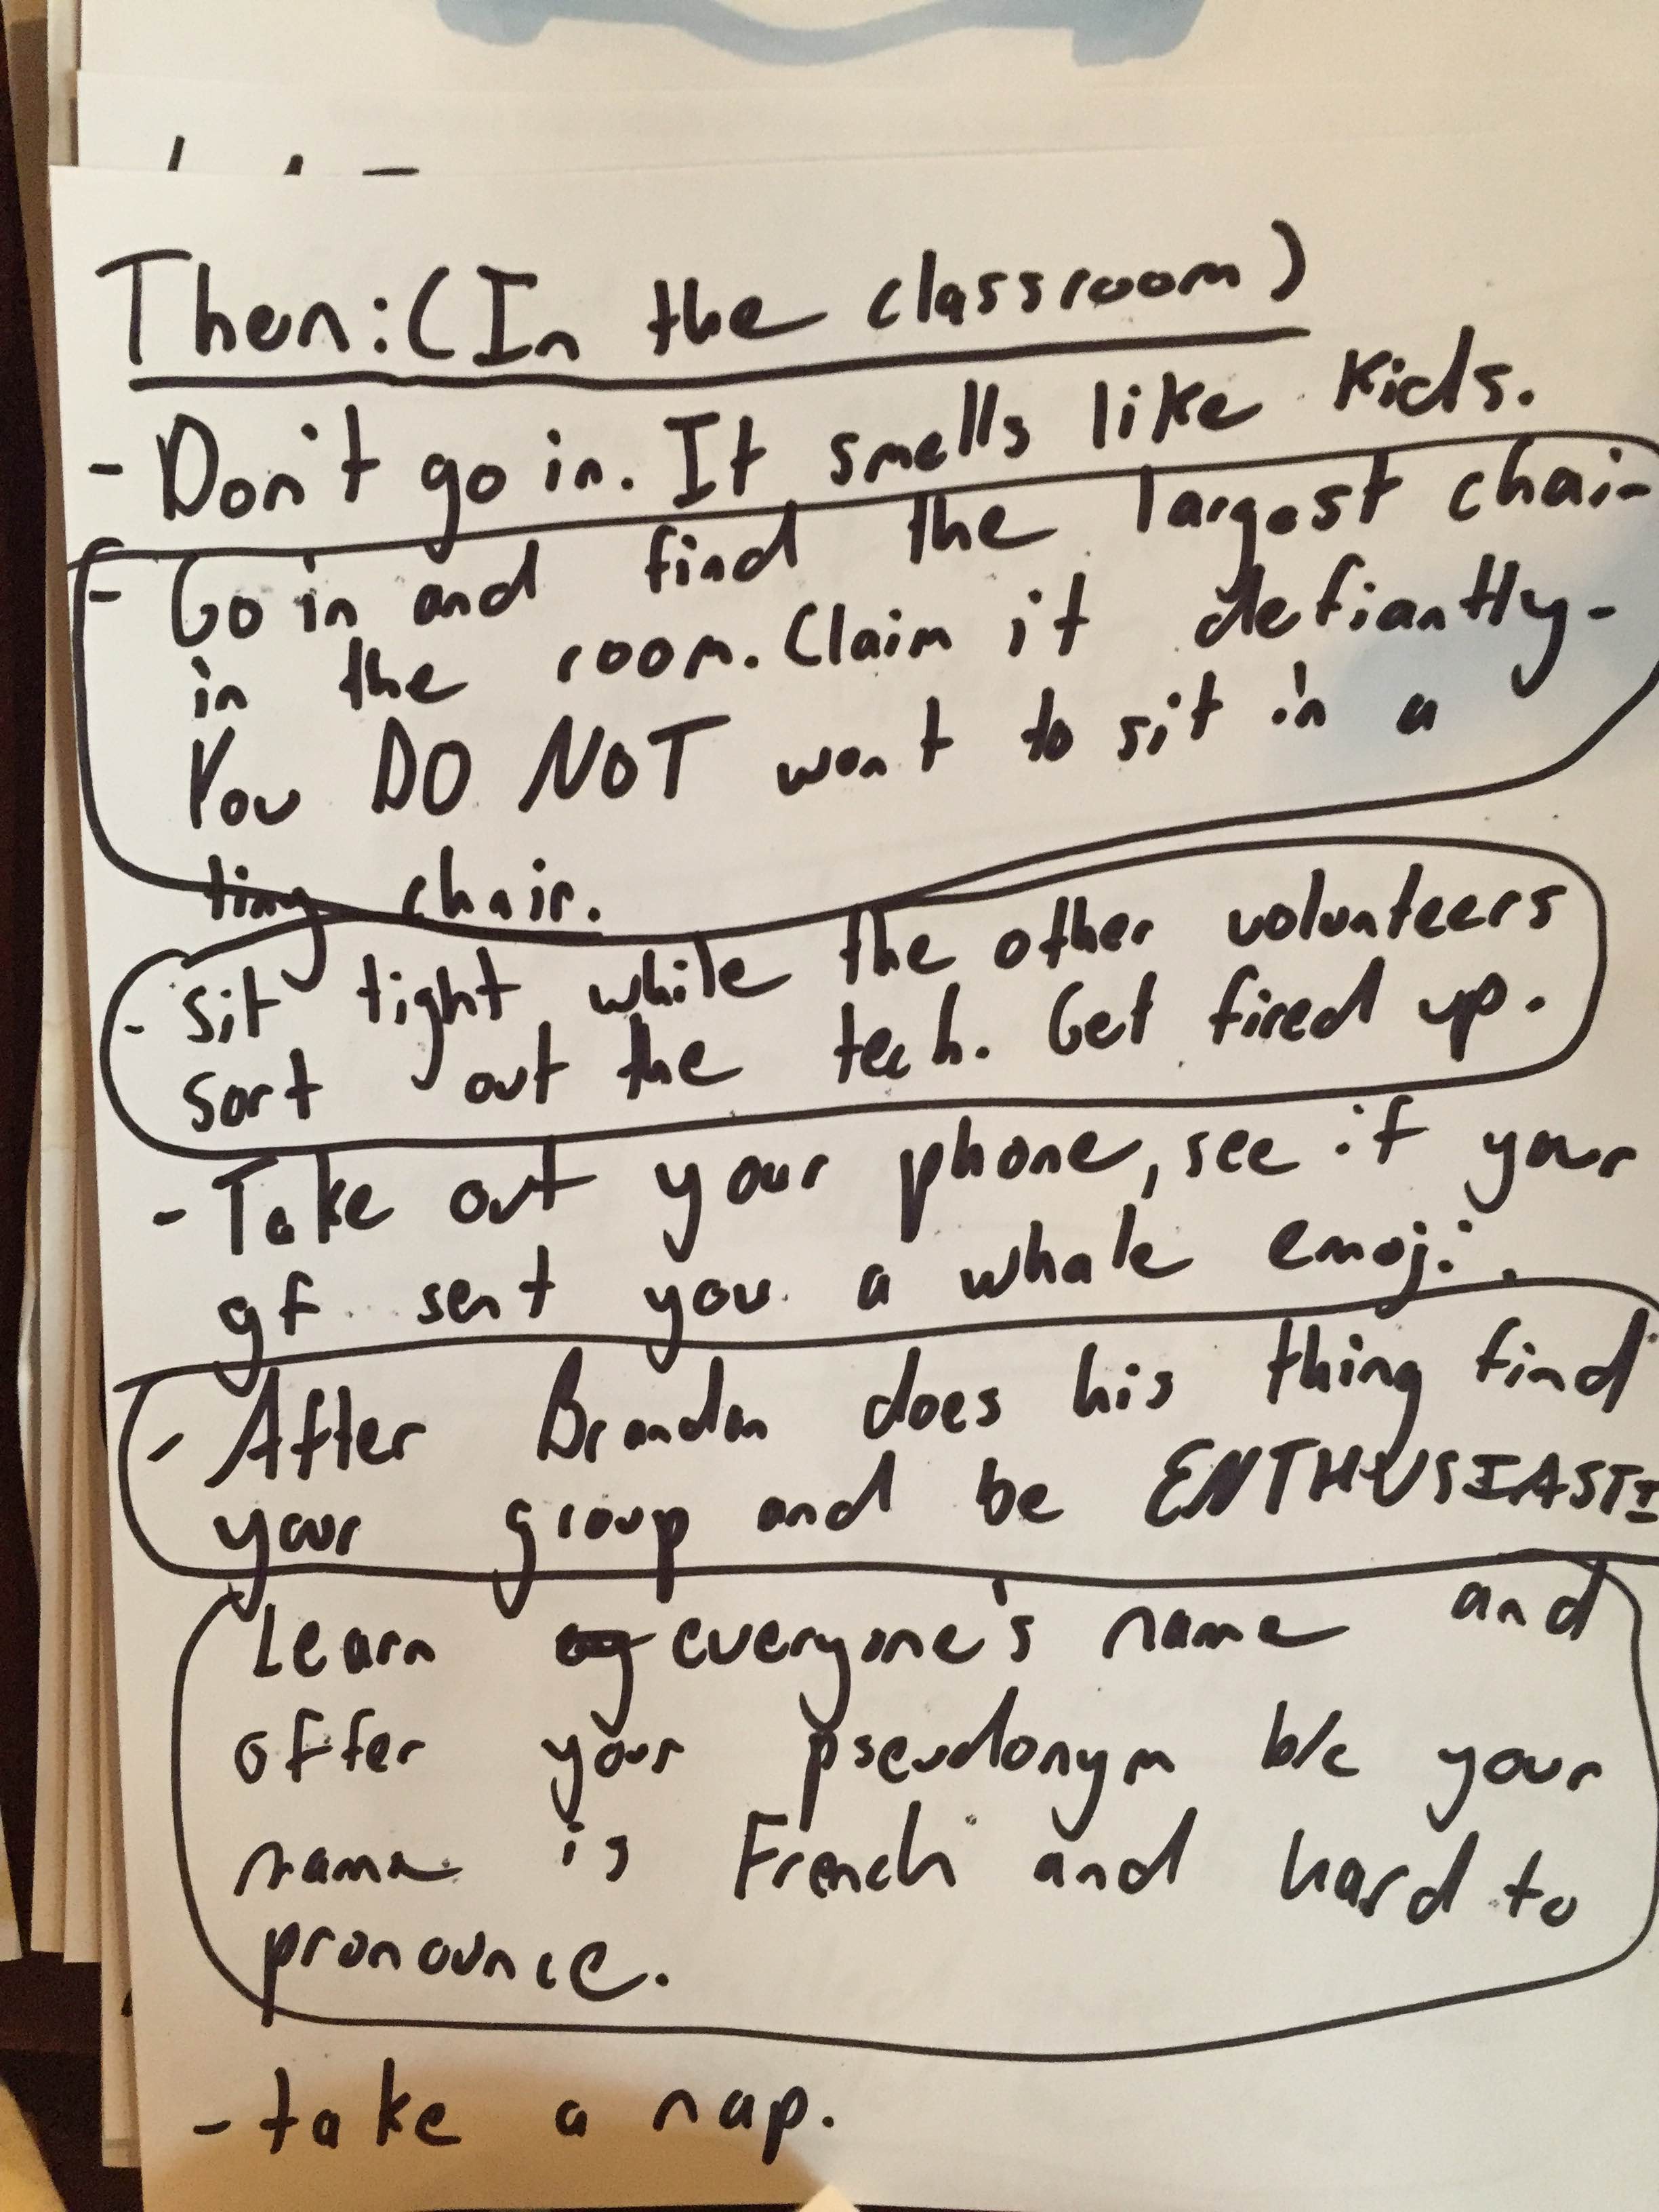 Then: (In the classroom)
- Don't go in. It smells like kids.
- Go in and find the largest chair
in the room. Claim it defiantly-
You DO NOT want to sit in a
tiny chair.
- Sit tight while the other volunteers
sort out the tech. Get fired up.
- Take out your phone, see if your
gf sent you a whale emoji.
- After Brandon does his thing find
your group and be ENTHUSIASTI
Learn everyone's name and
offer your pseudonym b/c your
name is French and hard to
pronounce.
- take a nap.